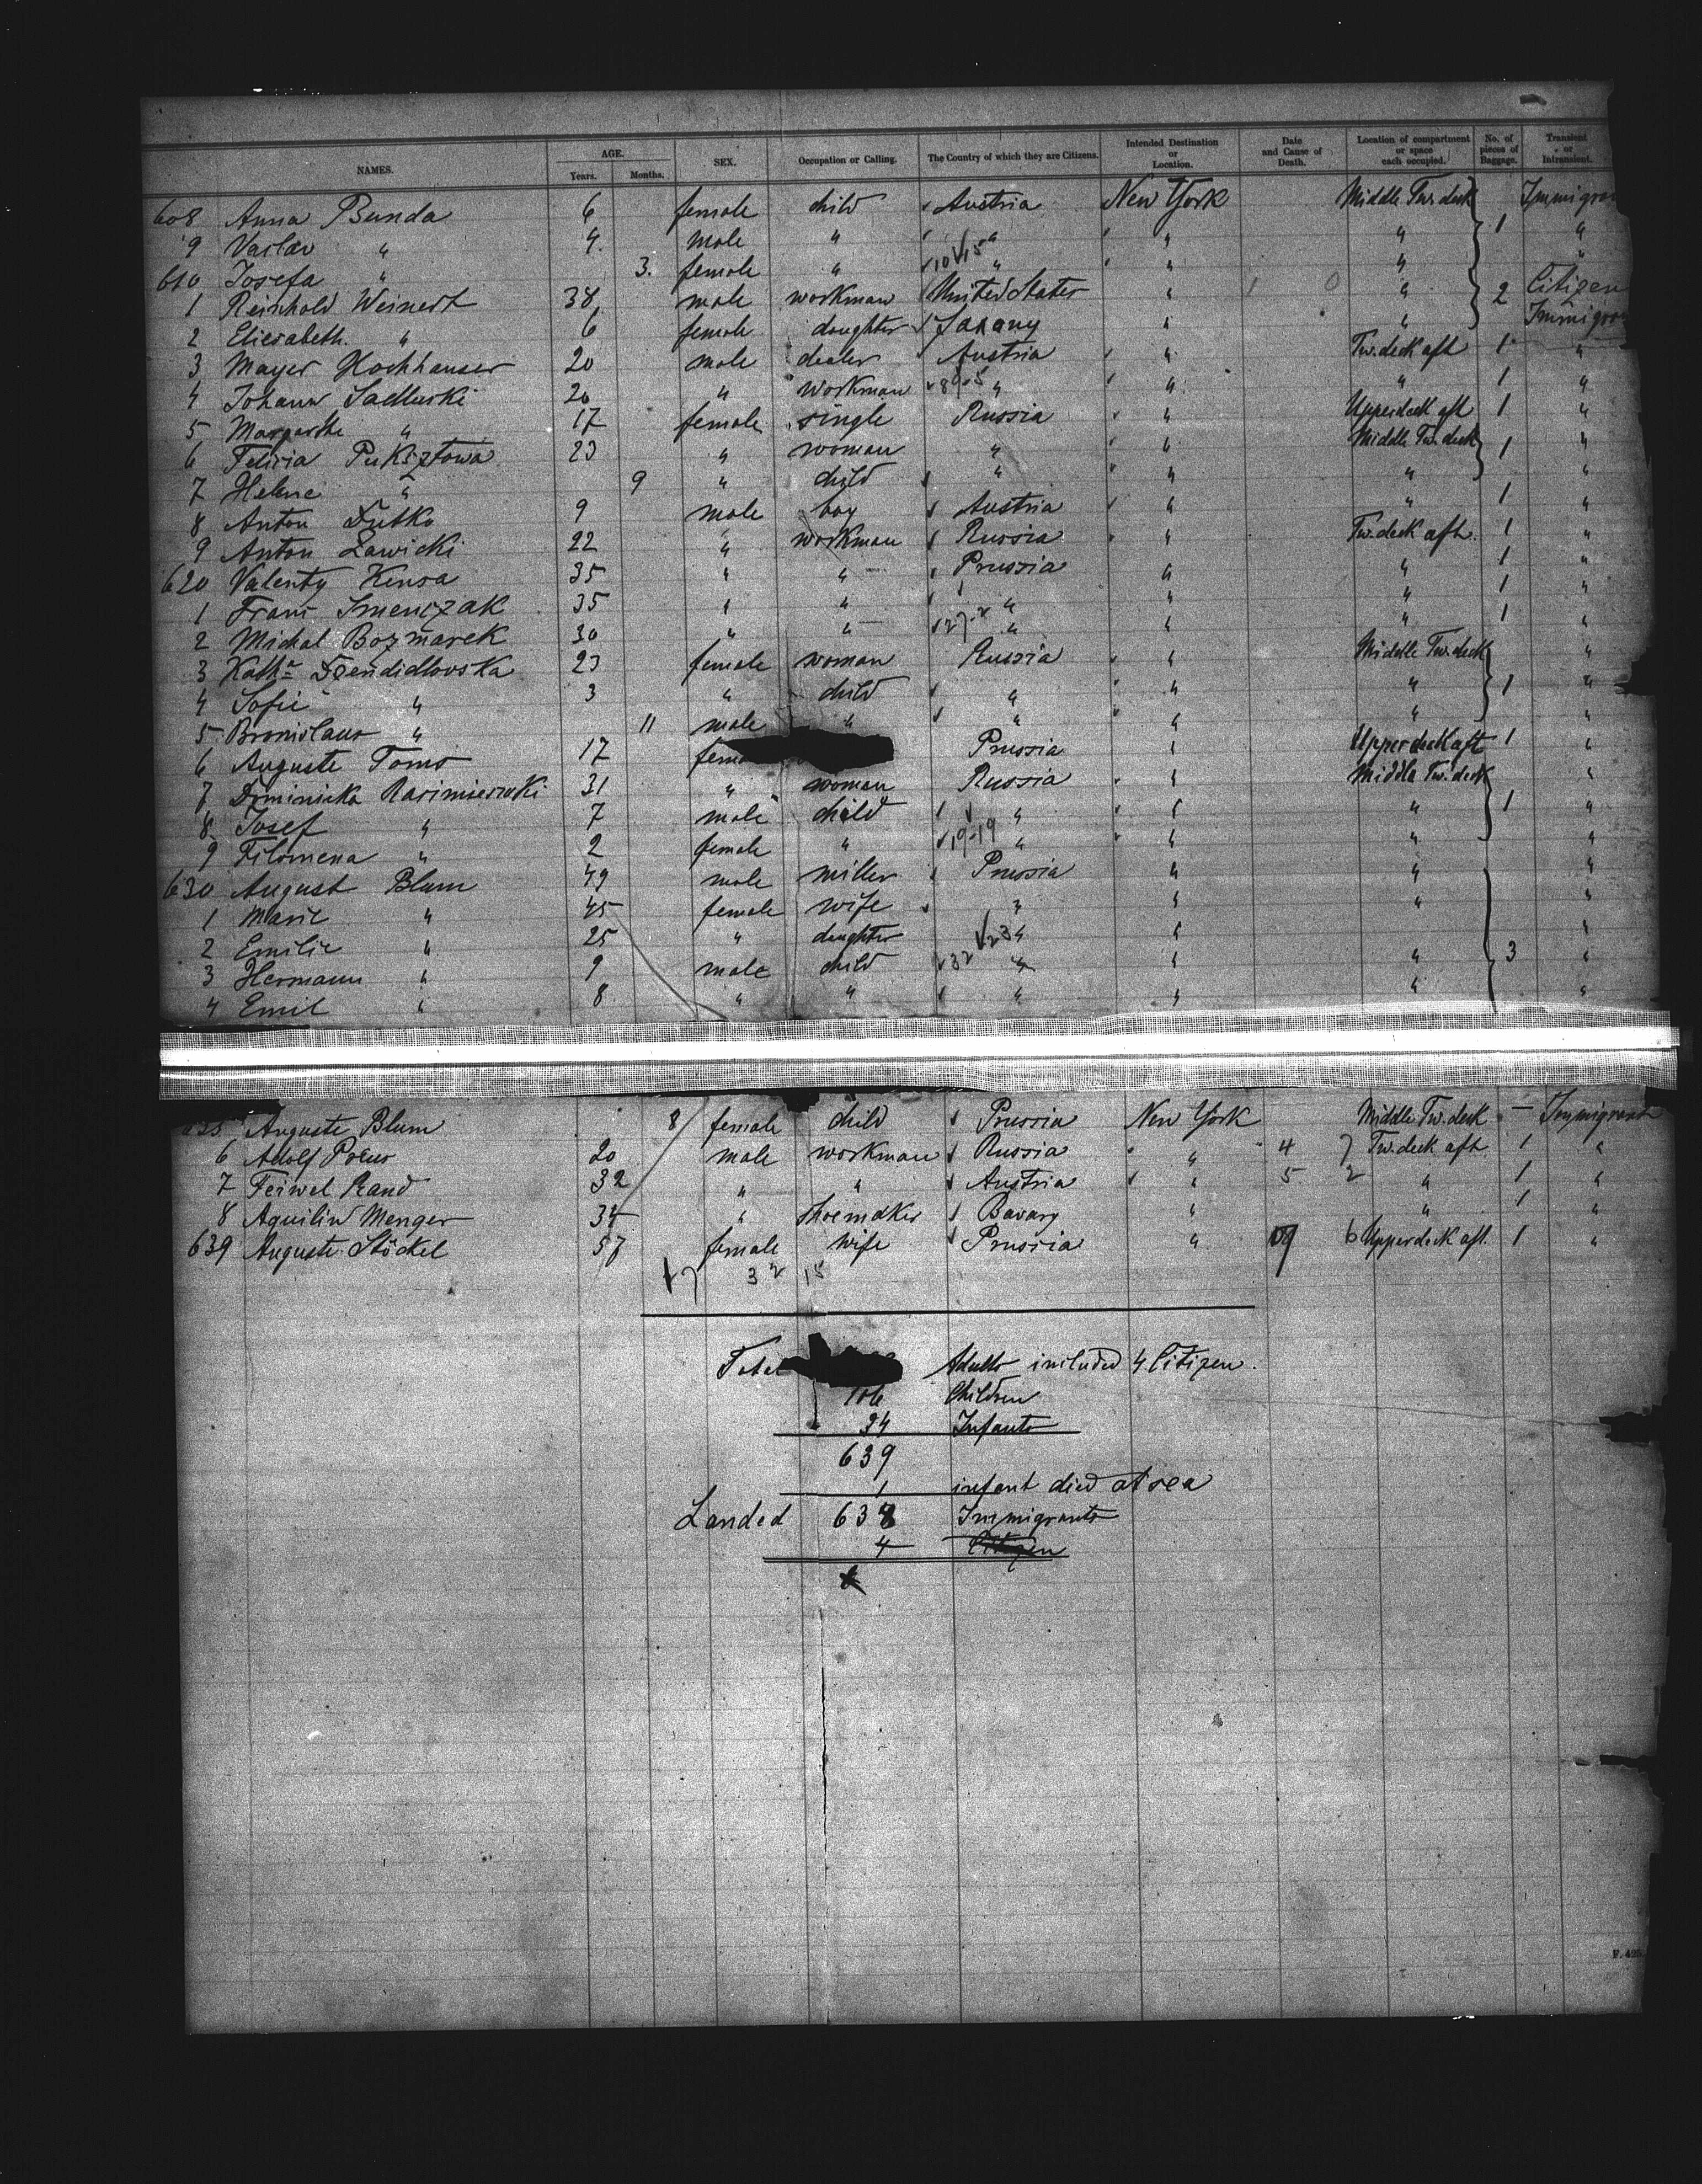 NAMES. AGE. Years. Months. SEX. Occupation or Calling. The Country of which they are Citizens. Intended Destination or Location. Date and Cause of Death. Location of compartment or space each occupied. No. of pieces of Baggage. Transient or Intransient.
608 Anna Bunda 6 female child Austria New York Middle Tw. deck Immigran
9 Vaslav " 4. male " " " " 1 "
610 Josefa " 3. female " " " " "
1 Reinhold Weinert 38 male workman United States " " 2 Citizen
2 Eliesabeth. " 6 female daughter Saxony " " Immigran
3 Mayer Hochhauser 20 male dealer Austria " Tw. deck aft 1 "
4 Johann Sadluski 20 " workman " " " 1 "
5 Margarethe " 17 female single Russia " Upperdeck aft 1 "
6 Felicia Puksztowa 23 " woman " " Middle Tw. deck 1 "
7 Helene " 9 " child " " " "
8 Anton Dutko 9 male boy Austria " " 1 "
9 Anton Zawicki 22 " workman Russia " Tw. deck aft. 1 "
620 Valenty Kensa 35 " " Prussia " " 1 "
1 Franz Smenczak 35 " " " " " 1 "
2 Michal Bozmarek 30 " " " " " 1 "
3 Kath. Dzendidlovska 23 female woman Russia " Middle Tw. deck "
4 Sofie " 3 " child " " " 1 "
5 Bronislaus " 11 male " " " " "
6 Auguste Toms 17 fema Prussia " Upper deck aft 1 "
7 Dominicka Rasimierwski 31 " woman Russia " Middle Tw. deck "
8 Josef " 7 male child " " " 1 "
9 Filomena " 2 female " 19-19 " " " "
630 August Blum 49 male miller Prussia " " "
1 Marie " 45 female wife " " " "
2 Emilie " 25 " daughter " " "
3 Hermann " 9 male child " " " 3 "
4 Emil " 8 " " " " " "
635 Auguste Blum 8 female child Prussia New York Middle Tw. deck — Immigrant
6 Adolf Preus 20 male workman Russia " 4 7 Tw. deck aft. 1 "
7 Feiwel Rand 32 " " Austria " 5 2 " 1 "
8 Aquilin Menger 34 " shoemaker Bavary " " 1 "
639 Auguste Stöckel 57 female wife Prussia " 6 Upperdeck aft. 1 "
7 32 15
Total Adults included 4 Citizen.
106 Children
34 Infants
639
1 infant died at sea
Landed 638 Immigrants
4 Citizen